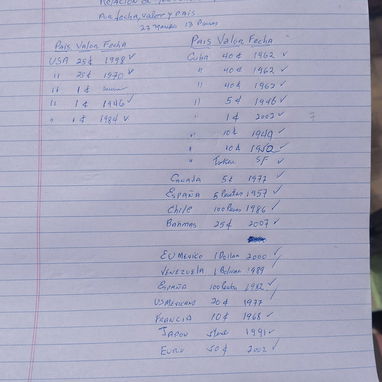 RELACION DE
Por fecha, valor y pais
País Valor Fecha
USA 25¢ 1998 ✓
" 25¢ 1970 ✓
" 1¢
" 1¢ 1946 ✓
" 1¢ 1984 ✓
País Valor Fecha
Cuba 40¢ 1962 ✓
" 40¢ 1962 ✓
" 40¢ 1962 ✓
" 5¢ 1946 ✓
" 1¢ 2002 ✓
" 10¢ 1949 ✓
" 10¢ 1952 ✓
" SF ✓
Canada 5¢ 1977 ✓
ESPAÑA 5 Pesetas 1957 ✓
Chile 100 Pesos 1986 ✓
Bahamas 25¢ 2007 ✓
EU MEXICO 1 2000 ✓
VENEZUELA 1 Bolivar 1989
ESPAÑA 100 1982 ✓
US MEXICANO 20¢ 1977
FRANCIA 10¢ 1968 ✓
JAPON 1991 ✓
EURO 50¢ 2002 ✓